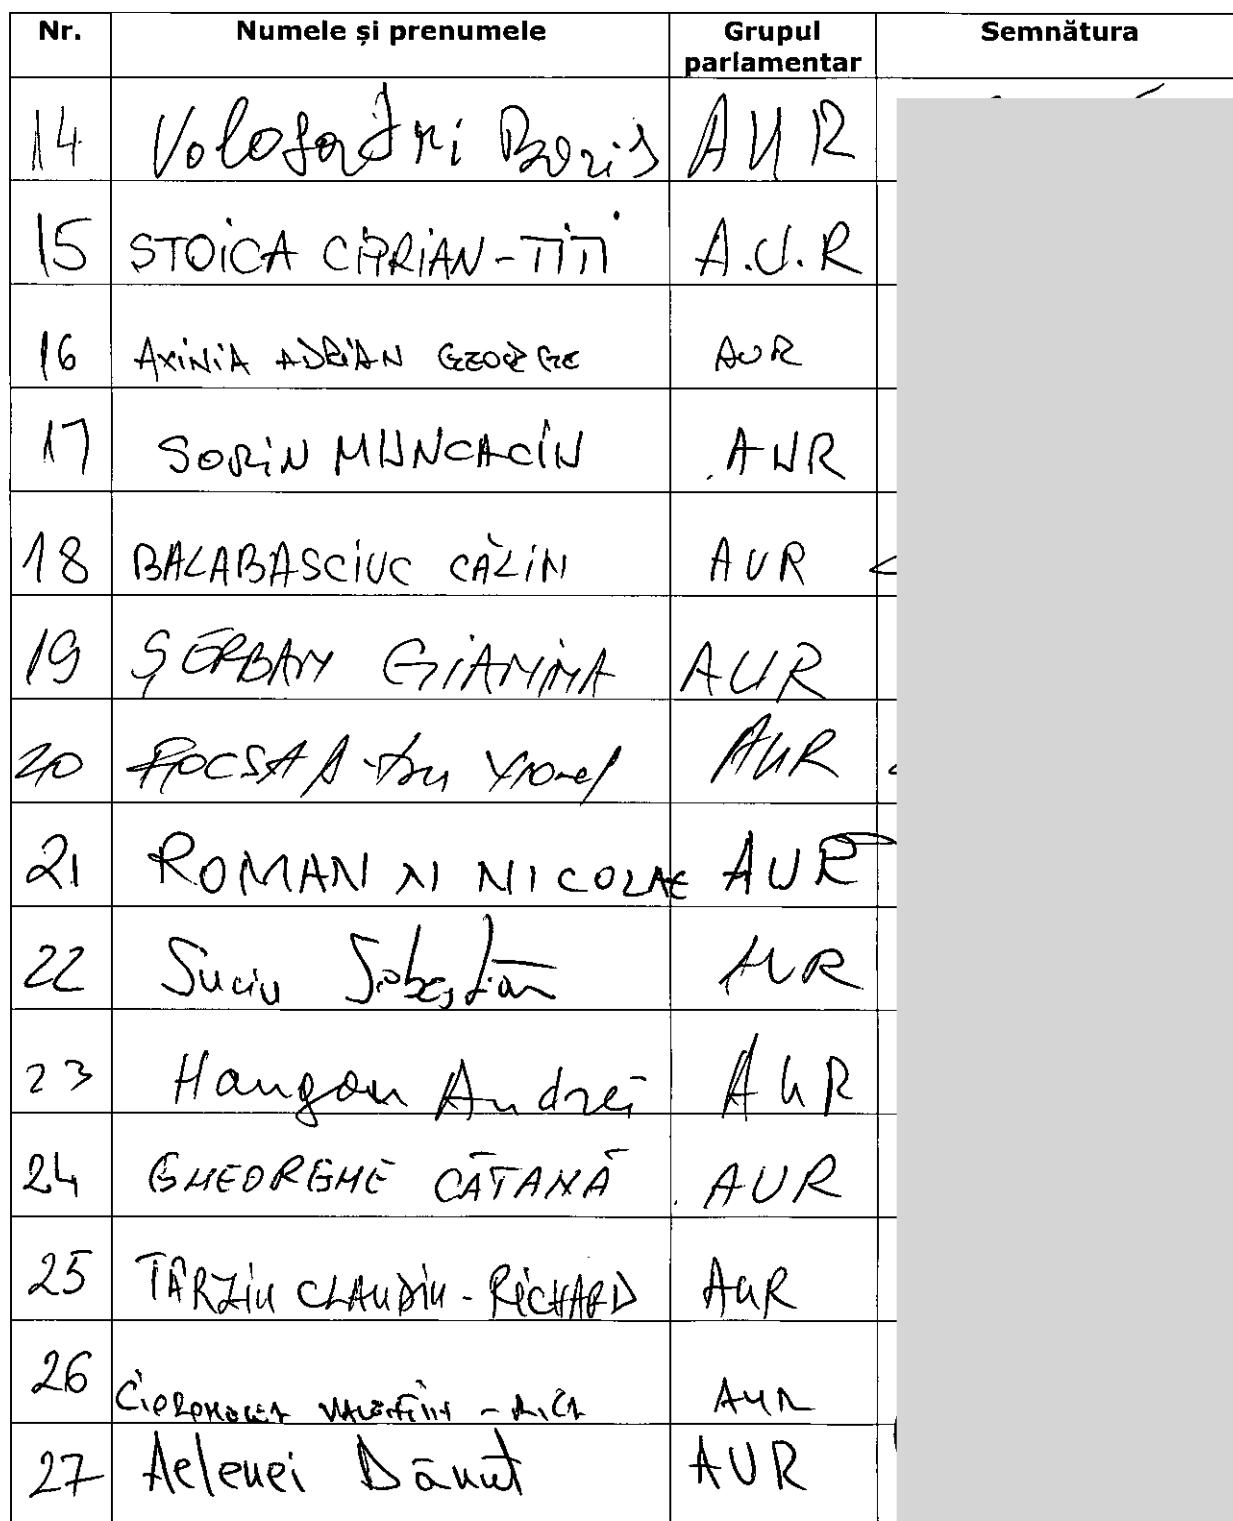 Nr. Numele și prenumele Grupul parlamentar Semnătura
14 Volosatîi Boris AUR
15 STOICA CIPRIAN-TITI A.U.R
16 AXINIA ADRIAN GEORGE AUR
17 SORIN MUNCACIU AUR
18 BALABASCIUC CĂLIN AUR
19 ȘERBAN GIANINA AUR
20 FOCSA AUR
21 ROMAN NICOLAE AUR
22 Suciu Sebastian AUR
23 Hangan Andrei AUR
24 GHEORGHE CĂTANĂ AUR
25 TÂRZIU CLAUDIU-RICHARD AUR
26 AUR
27 Aelenei Dănuț AUR